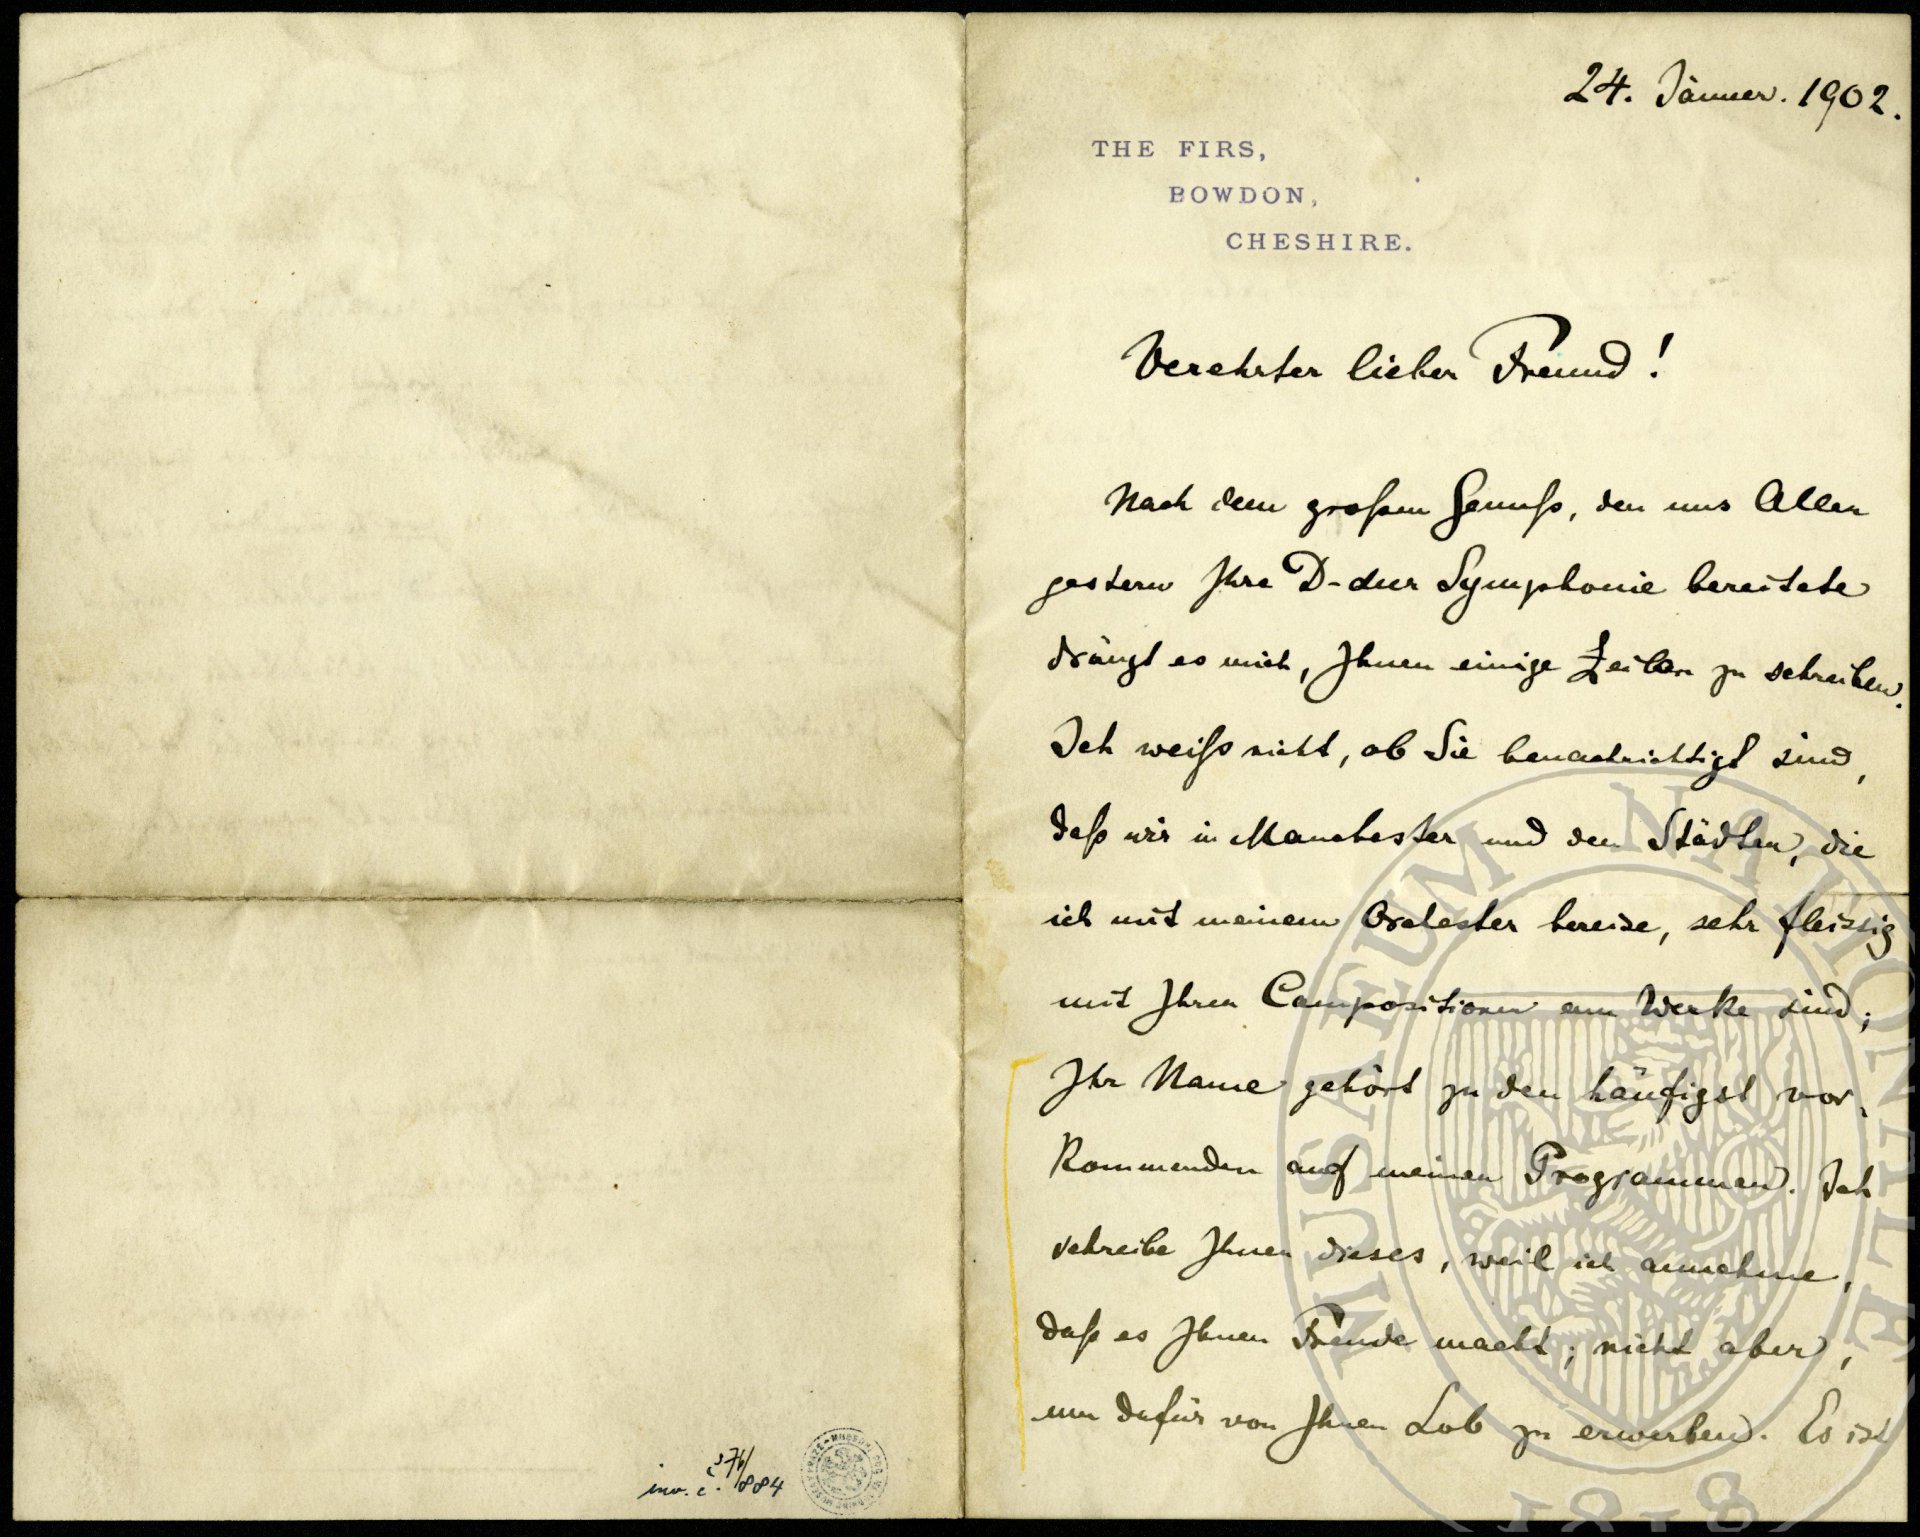 24. Jänner. 1902.
THE FIRS,
BOWDON,
CHESHIRE.
Verehrter lieber Freund!
Nach dem großen Genuß, den uns Allen
gestern Ihre D-dur Symphonie bereitete
drängt es mich, Ihnen einige Zeilen zu schreiben.
Ich weiß nicht, ob Sie benachrichtigt sind,
daß wir in Manchester und den Städten, die
ich mit meinem Orchester bereise, sehr fleissig
mit Ihren Compositionen am Werke sind;
Ihr Name gehört zu den häufigst vor-
kommenden auf meinen Programmen. Ich
schreibe Ihnen dieses, weil ich annehme,
daß es Ihnen Freude macht; nicht aber,
um dafür von Ihnen Lob zu erwerben. Es ist
inv. č. 884
MUSAEUM NATIONALE
1818